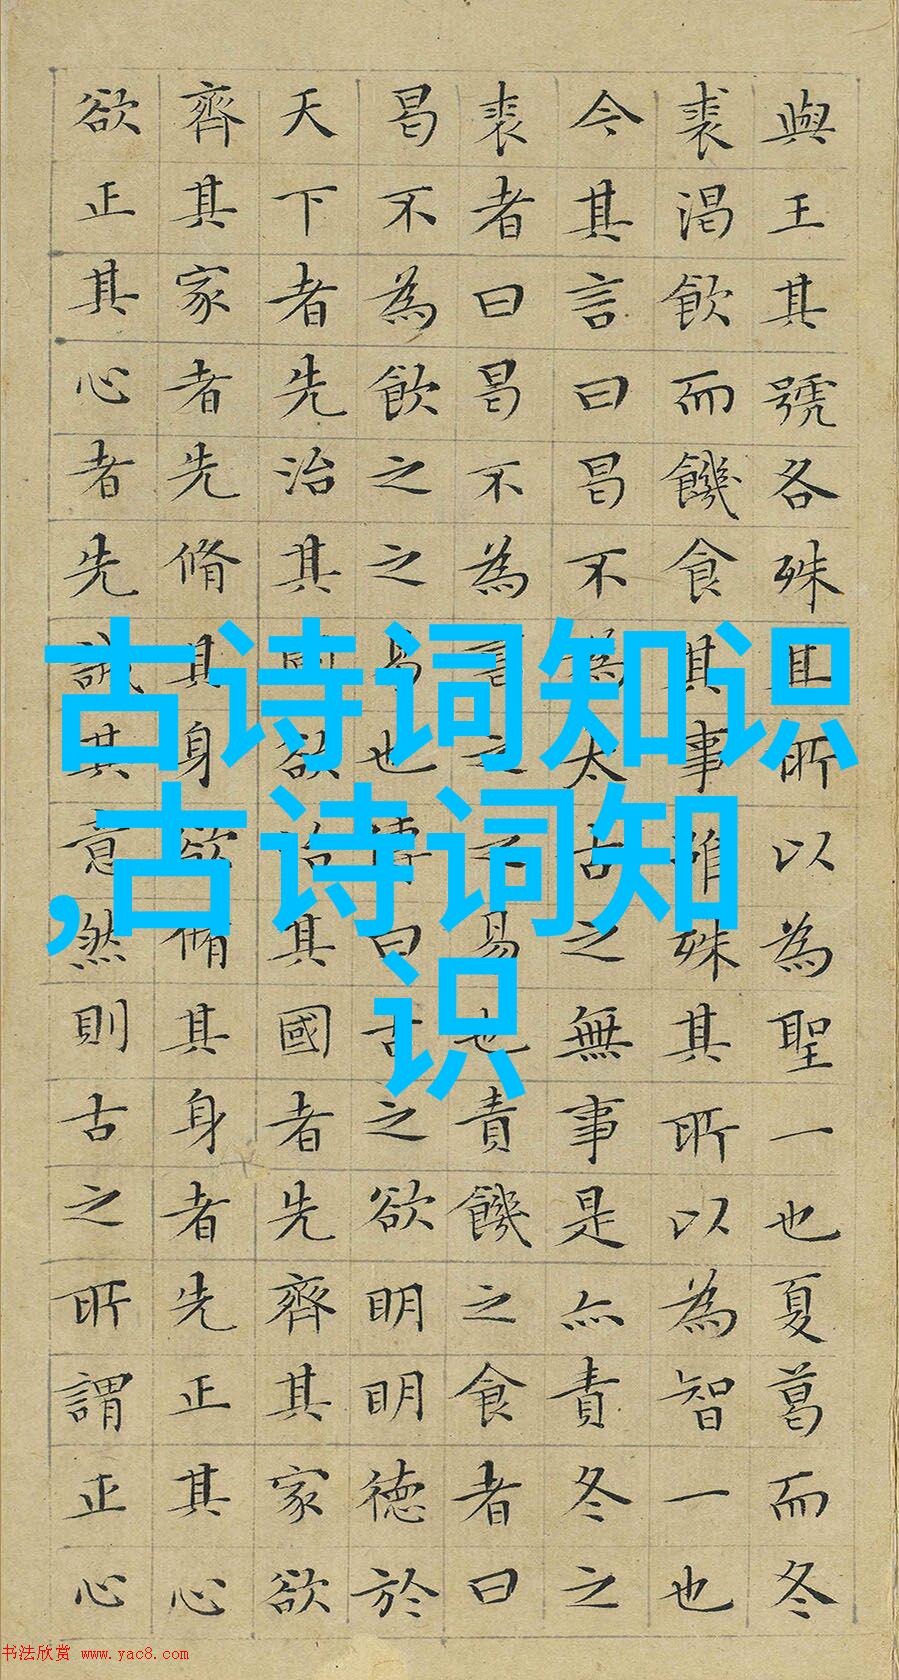 與王其號各殊其所以為聖一也夏葛而冬
裘渴飲而饑食其事雖殊其所以為智一也
今其言曰曷不為太古之無事是亦責冬之
裘者曰曷不為葛之之易也責饑之食者曰
曷不為飲之之易也傳曰古之欲明明德於
天下者先治其國欲治其國者先齊其家欲
齊其家者先脩其身欲脩其身者先正其心
欲正其心者先誠其意然則古之所謂正心
古诗词知识
,古诗词知
识
书法欣赏 www.yac8.com